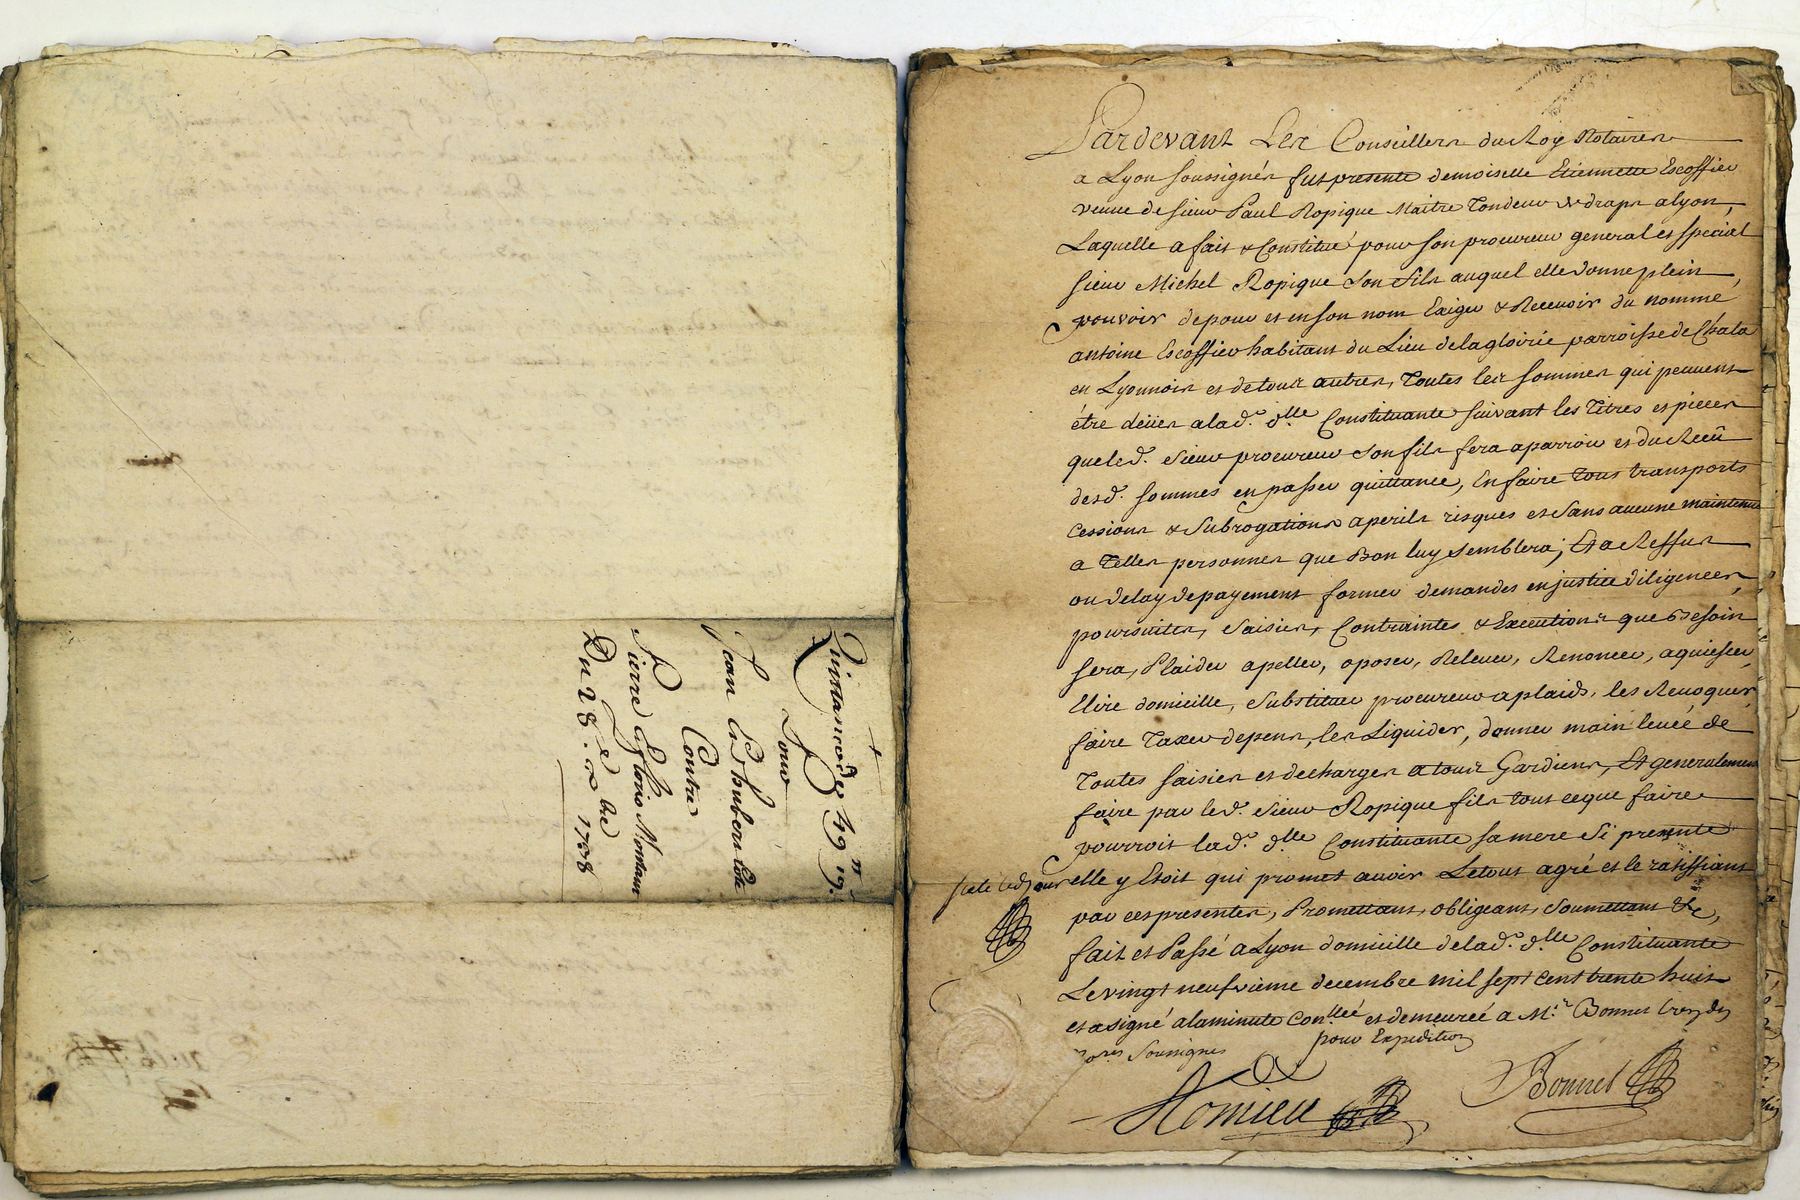 Quittance de 49 lt 19 s.
Pour
Jean
Contre
Pierre
Du 28e xbre 1738
Pardevant Les Conseillers du Roy Notaires
a Lyon soussignés fut presente demoiselle Etiennette Escoffier
veuve de sieur Paul Ropique Maitre Tondeur de draps a Lyon,
Laquelle a fait & Constitué pour son procureur general et special
sieur Michel Ropique son fils auquel elle donne plein
pouvoir de pour et en son nom Exiger & Recevoir du nommé
antoine Escoffier habitant du Lieu de la gloirie parroisse de Chala
en Lyonnois et de tous autres, Toutes les sommes qui peuvent
être deües a lad.e d.lle Constituante suivant les Titres et pieces
que led. sieur procureur son fils fera aparroir et du Recû
desd. sommes en passer quittance, En faire Tous transports
cessions & subrogations a perils risques et sans aucune maintenue
a Telles personnes que Bon luy semblera; Et a Reffus
ou delay de payement former demandes en justice diligences,
poursuites, saisies, Contraintes & Executions que Besoin
sera, Plaider apeller, oposer, Relever, Renoncer, aquiescer,
Elire domicille, substituer procureur a plaids, les Revoquer,
faire Taxer depens, les Liquider, donner main levée de
Toutes saisies et decharges a tous Gardiens, Et generalement
faire par led. sieur Ropique fils tout ce que faire
pourroit lad.e d.lle Constituante sa mere si presente
elle y Etoit qui promet avoir Le tout agré et le ratiffiant
par ces presentes, Promettant, obligeant, soumettant &c,
fait et Passé a Lyon domicille de lad.e d.lle Constituante
Le vingt neufvieme decembre mil sept cent trente huit
et a signé a la minute con.llée et demeurée a M.e Bonnet l'un des
no.res soussignés pour Expedition
Romieu
Bonnet